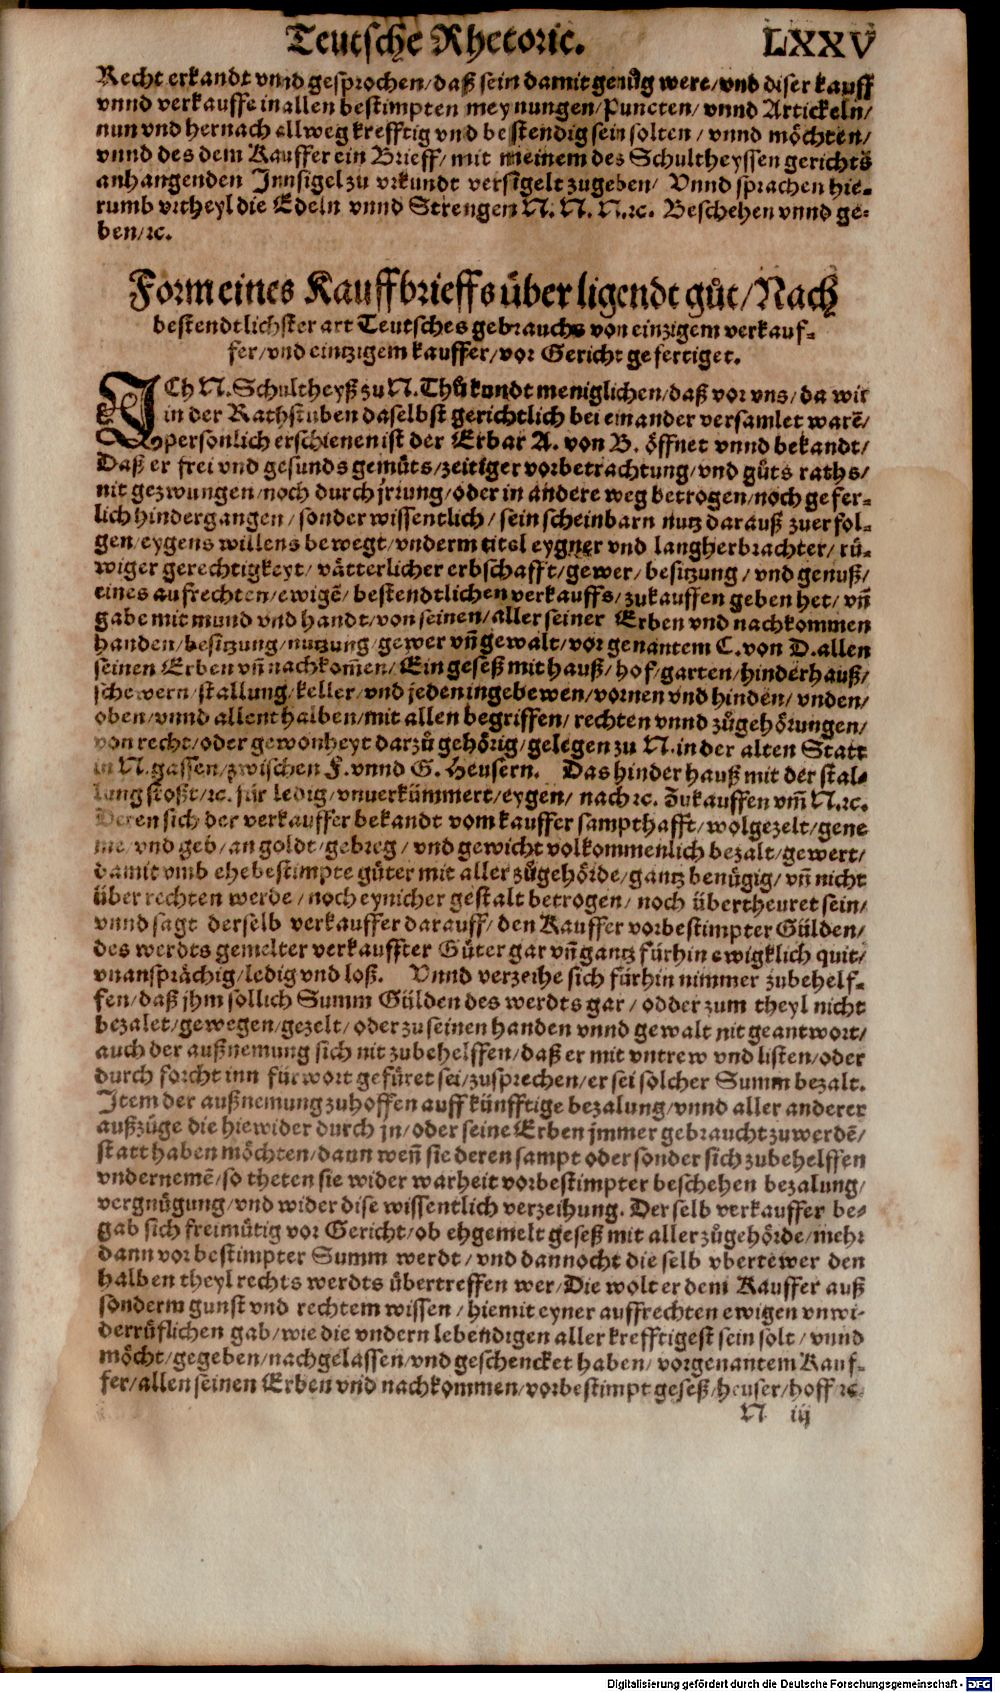 Teutsche Rhetoric. LXXV
Recht erkandt vnnd gesprochen/daß sein damit genůg were/vnd diser kauff
vnnd verkauffe in allen bestimpten meynungen/Puncten/vnnd Artickeln/
nun vnd hernach allweg krefftig vnd bestendig sein solten/vnnd möchten/
vnnd des dem Kauffer ein Brieff/mit meinem des Schultheyssen gerichts
anhangenden Jnnsigel zu vrkundt versigelt zugeben/ Vnnd sprachen hie-
rumb vrtheyl die Edeln vnnd Strengen N. N. N.ꝛc. Beschehen vnnd ge-
ben/ꝛc.
Form eines Kauffbrieffs über ligendt gůt/Nach
bestendtlichster art Teutsches gebrauchs von einzigem verkauf-
fer/vnd eintzigem kauffer/vor Gericht gefertiget.
JCh N. Schultheyß zu N. Thů kundt meniglichen/daß vor vns/da wir
in der Rathstuben daselbst gerichtlich bei einander versamlet warẽ/
personlich erschienen ist der Erbar A. von B. öffnet vnnd bekandt/
Daß er frei vnd gesunds gemůts/zeitiger vorbetrachtung/vnd gůts raths/
nit gezwungen/noch durch jrrung/oder in andere weg betrogen/noch gefer-
lich hindergangen/sonder wissentlich/sein scheinbarn nutz darauß zuerfol-
gen/eygens willens bewegt/vnderm titel eygner vnd langherbrachter/rů-
wiger gerechtigkeyt/vätterlicher erbschafft/gewer/besitzung/vnd genuß/
eines aufrechten/ewigẽ/bestendtlichen verkauffs/zukauffen geben het/vñ
gabe mit mund vnd handt/von seinen/aller seiner Erben vnd nachkommen
handen/besitzung/nutzung/gewer vñ gewalt/vorgenantem C. von D. allen
seinen Erben vñ nachkom̃en/Ein geseß mit hauß/hof/garten/hinderhauß/
schewern/stallung/keller/vnd jeden ingebewen/vornen vnd hinden/vnden/
oben/vnnd allenthalben/mit allen begriffen/rechten vnnd zůgehörungen/
von recht/oder gewonheyt darzů gehörig/gelegen zu N. in der alten Statt
in N. gassen/zwischen F. vnnd G. Heusern. Das hinder hauß mit der stal-
lung stoßt/ꝛc. für ledig/vnuerkümmert/eygen/nach ꝛc. Zukauffen vm̃ N.ꝛc.
Deren sich der verkauffer bekandt vom kauffer sampthafft/wolgezelt/gene
me/vnd geb/an goldt/gebreg/vnd gewicht volkommenlich bezalt/gewert/
damit vmb ehebestimpte güter mit aller zůgehörde/gantz benügig/vñ nicht
über rechten werde/noch eynicher gestalt betrogen/noch übertheuret sein/
vnnd sagt derselb verkauffer darauff/den Kauffer vorbestimpter Gülden/
des werdts gemelter verkauffter Güter gar vñ gantz fürhin ewigklich quit/
vnansprächig/ledig vnd loß. Vnnd verzeihe sich fürhin nimmer zubehelf-
fen/daß jhm sollich Summ Gülden des werdts gar/odder zum theyl nicht
bezalet/gewegen/gezelt/oder zu seinen handen vnnd gewalt nit geantwort/
auch der außnemung sich nit zubehelffen/daß er mit vntrew vnd listen/oder
durch forcht inn fürwort gefüret sei/zusprechen/er sei solcher Summ bezalt.
Jtem der außnemung zuhoffen auff künfftige bezalung/vnnd aller anderer
außzüge die hiewider durch jn/oder seine Erben jmmer gebraucht zuwerdẽ/
statt haben möchten/dann weñ sie deren sampt oder sonder sich zubehelffen
vndernemẽ/so theten sie wider warheit vorbestimpter beschehen bezalung/
vergnügung/vnd wider dise wissentlich verzeihung. Der selb verkauffer be-
gab sich freimütig vor Gericht/ob ehgemelt geseß mit aller zůgehörde/mehr
dann vorbestimpter Summ werdt/vnd dannocht die selb vbertewer den
halben theyl rechts werdts übertreffen wer/Die wolt er dem Kauffer auß
sonderm gunst vnd rechtem wissen/hiemit eyner auffrechten ewigen vnwi-
derrůflichen gab/wie die vndern lebendigen aller krefftigest sein solt/vnnd
möcht/gegeben/nachgelassen/vnd geschencket haben/vorgenantem Kauf-
fer/allen seinen Erben vnd nachkommen/vorbestimpt geseß/heuser/hoff ꝛc.
N iij
Digitalisierung gefördert durch die Deutsche Forschungsgemeinschaft - DFG